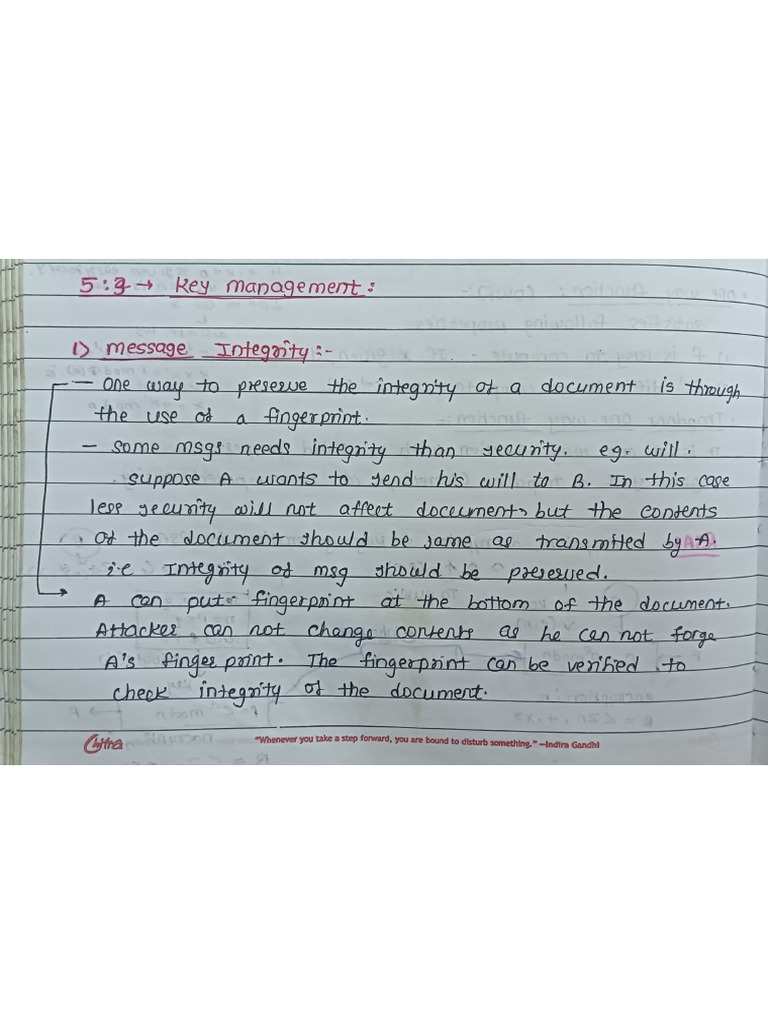 5:3 → Key management:
1) Message Integrity:-
- One way to preserve the integrity of a document is through
the use of a fingerprint.
- Some msgs needs integrity than security. eg. will.
Suppose A wants to send his will to B. In this case
less security will not affect document, but the contents
of the document should be same as transmitted by A.
i.e Integrity of msg should be preserved.
A can put fingerprint at the bottom of the document.
Attacker can not change contents as he can not forge
A's finger print. The fingerprint can be verified to
check integrity of the document.
Chitra
"Whenever you take a step forward, you are bound to disturb something." —Indira Gandhi